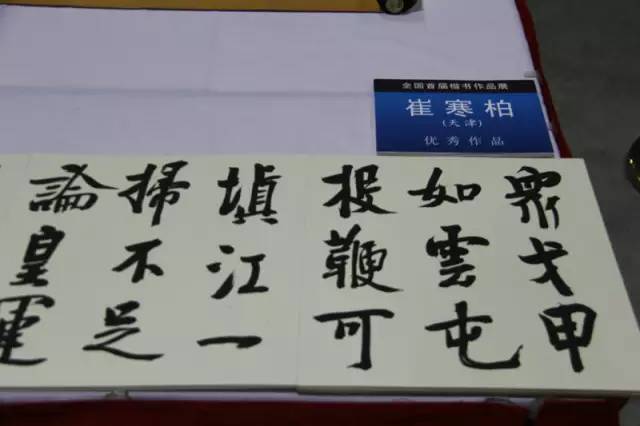 全国首届楷书作品展
崔寒柏
(天津)
优秀作品
眾戈甲
如雲屯
投鞭可
填江一
掃不足
論皇運